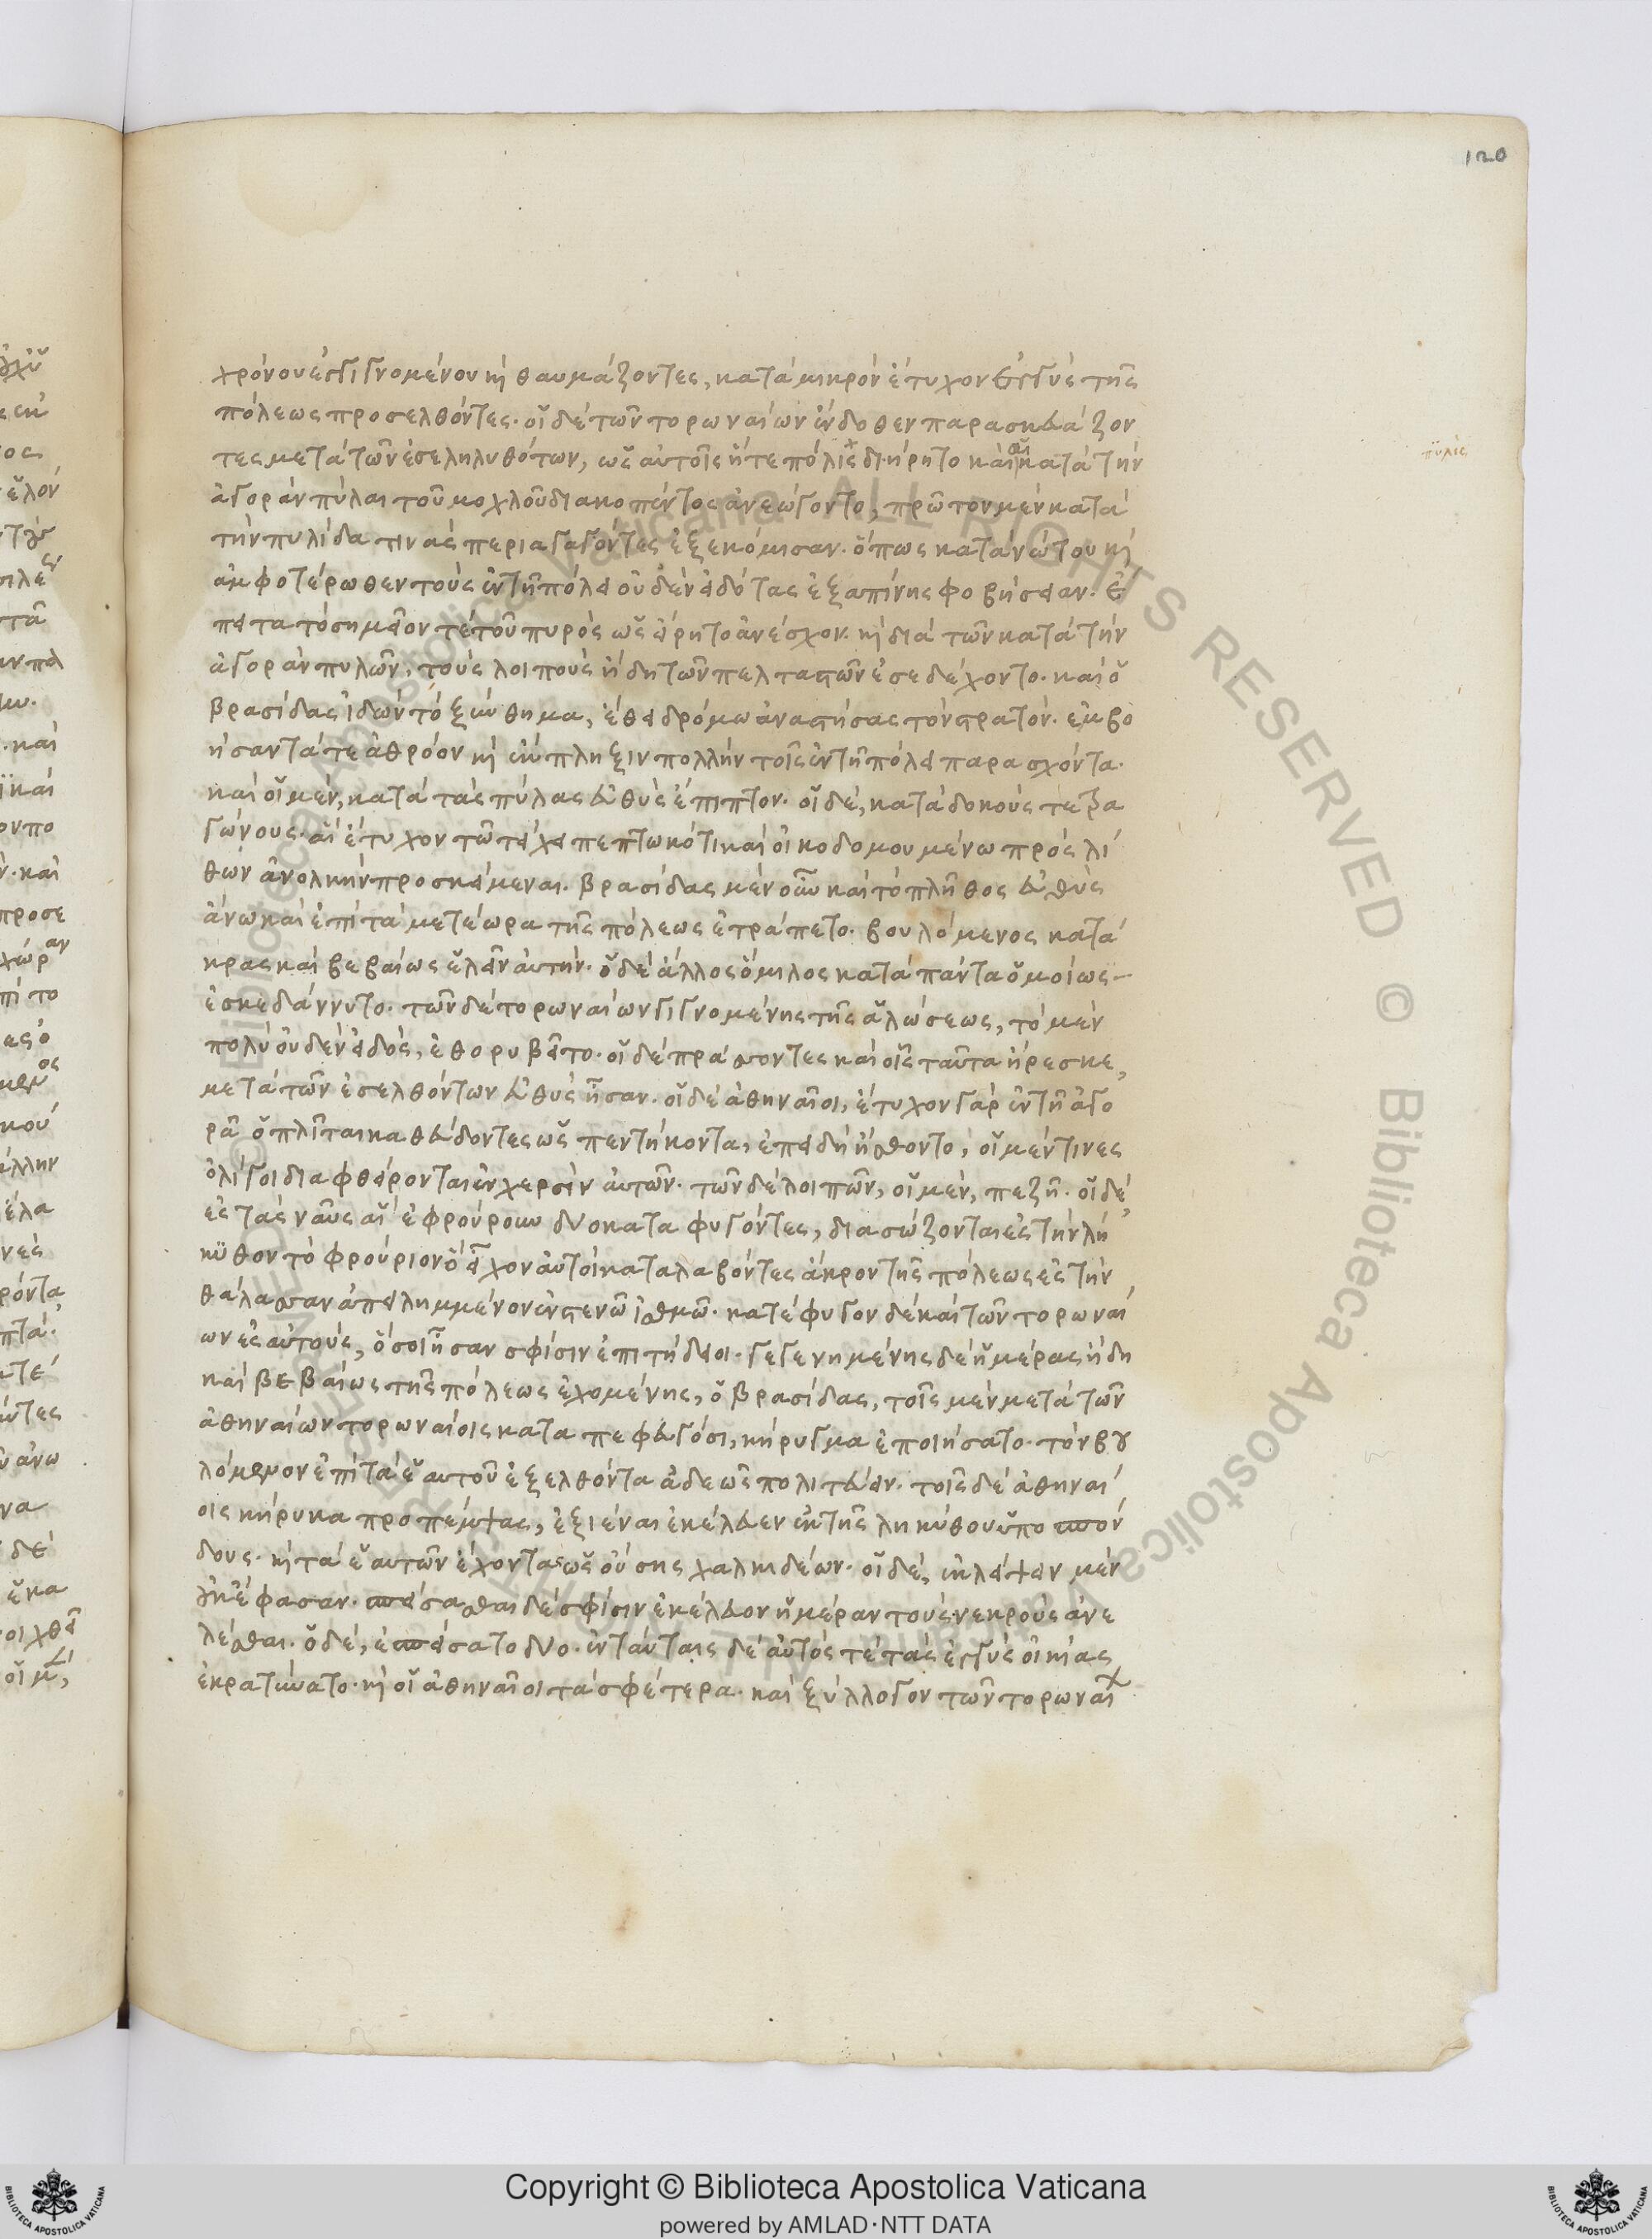 120
χρόνου ἐγγιγνομένου κὴ θαυμάζοντες, κατὰ μικρὸν ἔτυχον ἐγγὺς τῆς
πόλεως προσελθόντες· οἱ δὲ τῶν τορωναίων ἔνδοθεν παρασκευάζον
τες μετὰ τῶν ἐσεληλυθότων, ὡς αὐτοῖς ἥ τε πόλις διήρητο καὶ αἱ κατὰ τὴν
πυλὶς
ἀγορὰν πύλαι τοῦ μοχλοῦ διακοπέντος ἀνεώγοντο, πρῶτον μὲν κατὰ
τὴν πυλίδα τινὰς περιαγαγόντες ἐξεκόμισαν· ὅπως κατὰ νώτου κὴ
ἀμφοτέρωθεν τοὺς ἐν τῇ πόλει οὐδὲν εἰδότας ἐξαπίνης φοβήσειαν· ἔ
πειτα τὸ σημεῖόν τε τοῦ πυρὸς ὡς εἴρητο ἀνέσχον· κὴ διὰ τῶν κατὰ τὴν
ἀγορὰν πυλῶν, τοὺς λοιποὺς ἤδη τῶν πελταστῶν ἐσεδέχοντο· καὶ ὁ
βρασίδας ἰδὼν τὸ ξύνθημα, ἔθει δρόμω ἀναστήσας τὸν στρατὸν· ἐμβο
ήσαντά τε ἀθρόον κὴ ἔκπληξιν πολλὴν τοῖς ἐν τῇ πόλει παρασχόντα·
καὶ οἱ μὲν, κατὰ τὰς πύλας εὐθὺς ἔπιπτον· οἱ δὲ, κατὰ δοκοὺς τετρα
γώνους· αἳ ἔτυχον τῶ τείχει πεπτωκότι καὶ οἰκοδομουμένω πρὸς λί
θων ἀνολκὴν προσκείμεναι· βρασίδας μὲν οὖν καὶ τὸ πλῆθος εὐθὺς
ἄνω καὶ ἐπὶ τὰ μετέωρα τῆς πόλεως ἐτράπετο· βουλόμενος κατά
κρας καὶ βεβαίως ἑλεῖν αὐτήν· ὁ δὲ ἄλλος ὅμιλος κατὰ πάντα ὁμοίως
ἐσκεδάννυντο· τῶν δὲ τορωναίων γιγνομένης τῆς ἁλώσεως, τὸ μὲν
πολὺ οὐδὲν εἰδὸς, ἐθορυβεῖτο· οἱ δὲ πράσσοντες καὶ οἷς ταῦτα ἤρεσκε,
μετὰ τῶν ἐσελθόντων εὐθὺς ἦσαν· οἱ δὲ ἀθηναῖοι, ἔτυχον γὰρ ἐν τῇ ἀγο
ρᾷ ὁπλῖται καθεύδοντες ὡς πεντήκοντα, ἐπειδὴ ᾔσθοντο, οἱ μέν τινες
ὀλίγοι διαφθείρονται ἐν χερσὶν αὐτῶν· τῶν δὲ λοιπῶν, οἱ μὲν, πεζῇ· οἱ δὲ,
ἐς τὰς ναῦς αἳ ἐφρούρουν δύο καταφυγόντες, διασώζονται ἐς τὴν λή
κυθον τὸ φρούριον ὃ εἶχον αὐτοὶ καταλαβόντες ἄκρον τῆς πόλεως ἐς τὴν
θάλασσαν ἀπειλημμένον ἐν στενῶ ἰσθμῶ· κατέφυγον δὲ καὶ τῶν τορωναί
ων ἐς αὐτοὺς, ὅσοι ἦσαν σφίσιν ἐπιτήδειοι· γεγενημένης δὲ ἡμέρας ἤδη
καὶ βεβαίως τῆς πόλεως ἐχομένης, ὁ βρασίδας, τοῖς μὲν μετὰ τῶν
ἀθηναίων τορωναίοις καταπεφευγόσι, κήρυγμα ἐποιήσατο· τὸν βου
λόμενον ἐπὶ τὰ ἑαυτοῦ ἐξελθόντα ἀδεῶς πολιτεύειν· τοῖς δὲ ἀθηναί
οις κήρυκα προπέμψας, ἐξιέναι ἐκέλευεν ἐκ τῆς ληκύθου ὑποσπόν
δους· κὴ τὰ ἑαυτῶν ἔχοντας ὡς οὔσης χαλκιδέων· οἱ δὲ, ἐκλείψειν μὲν
οὐκ ἔφασαν· σπείσασθαι δὲ σφίσιν ἐκέλευον ἡμέραν τοὺς νεκροὺς ἀνε
λέσθαι· ὁ δὲ, ἐσπείσατο δύο· ἐν ταύταις δὲ αὐτός τε τὰς ἐγγὺς οἰκίας
ἐκρατύνατο· κὴ οἱ ἀθηναῖοι τὰ σφέτερα· καὶ ξύλλογον τῶν τορωναί
Copyright © Biblioteca Apostolica Vaticana
powered by AMLAD·NTT DATA